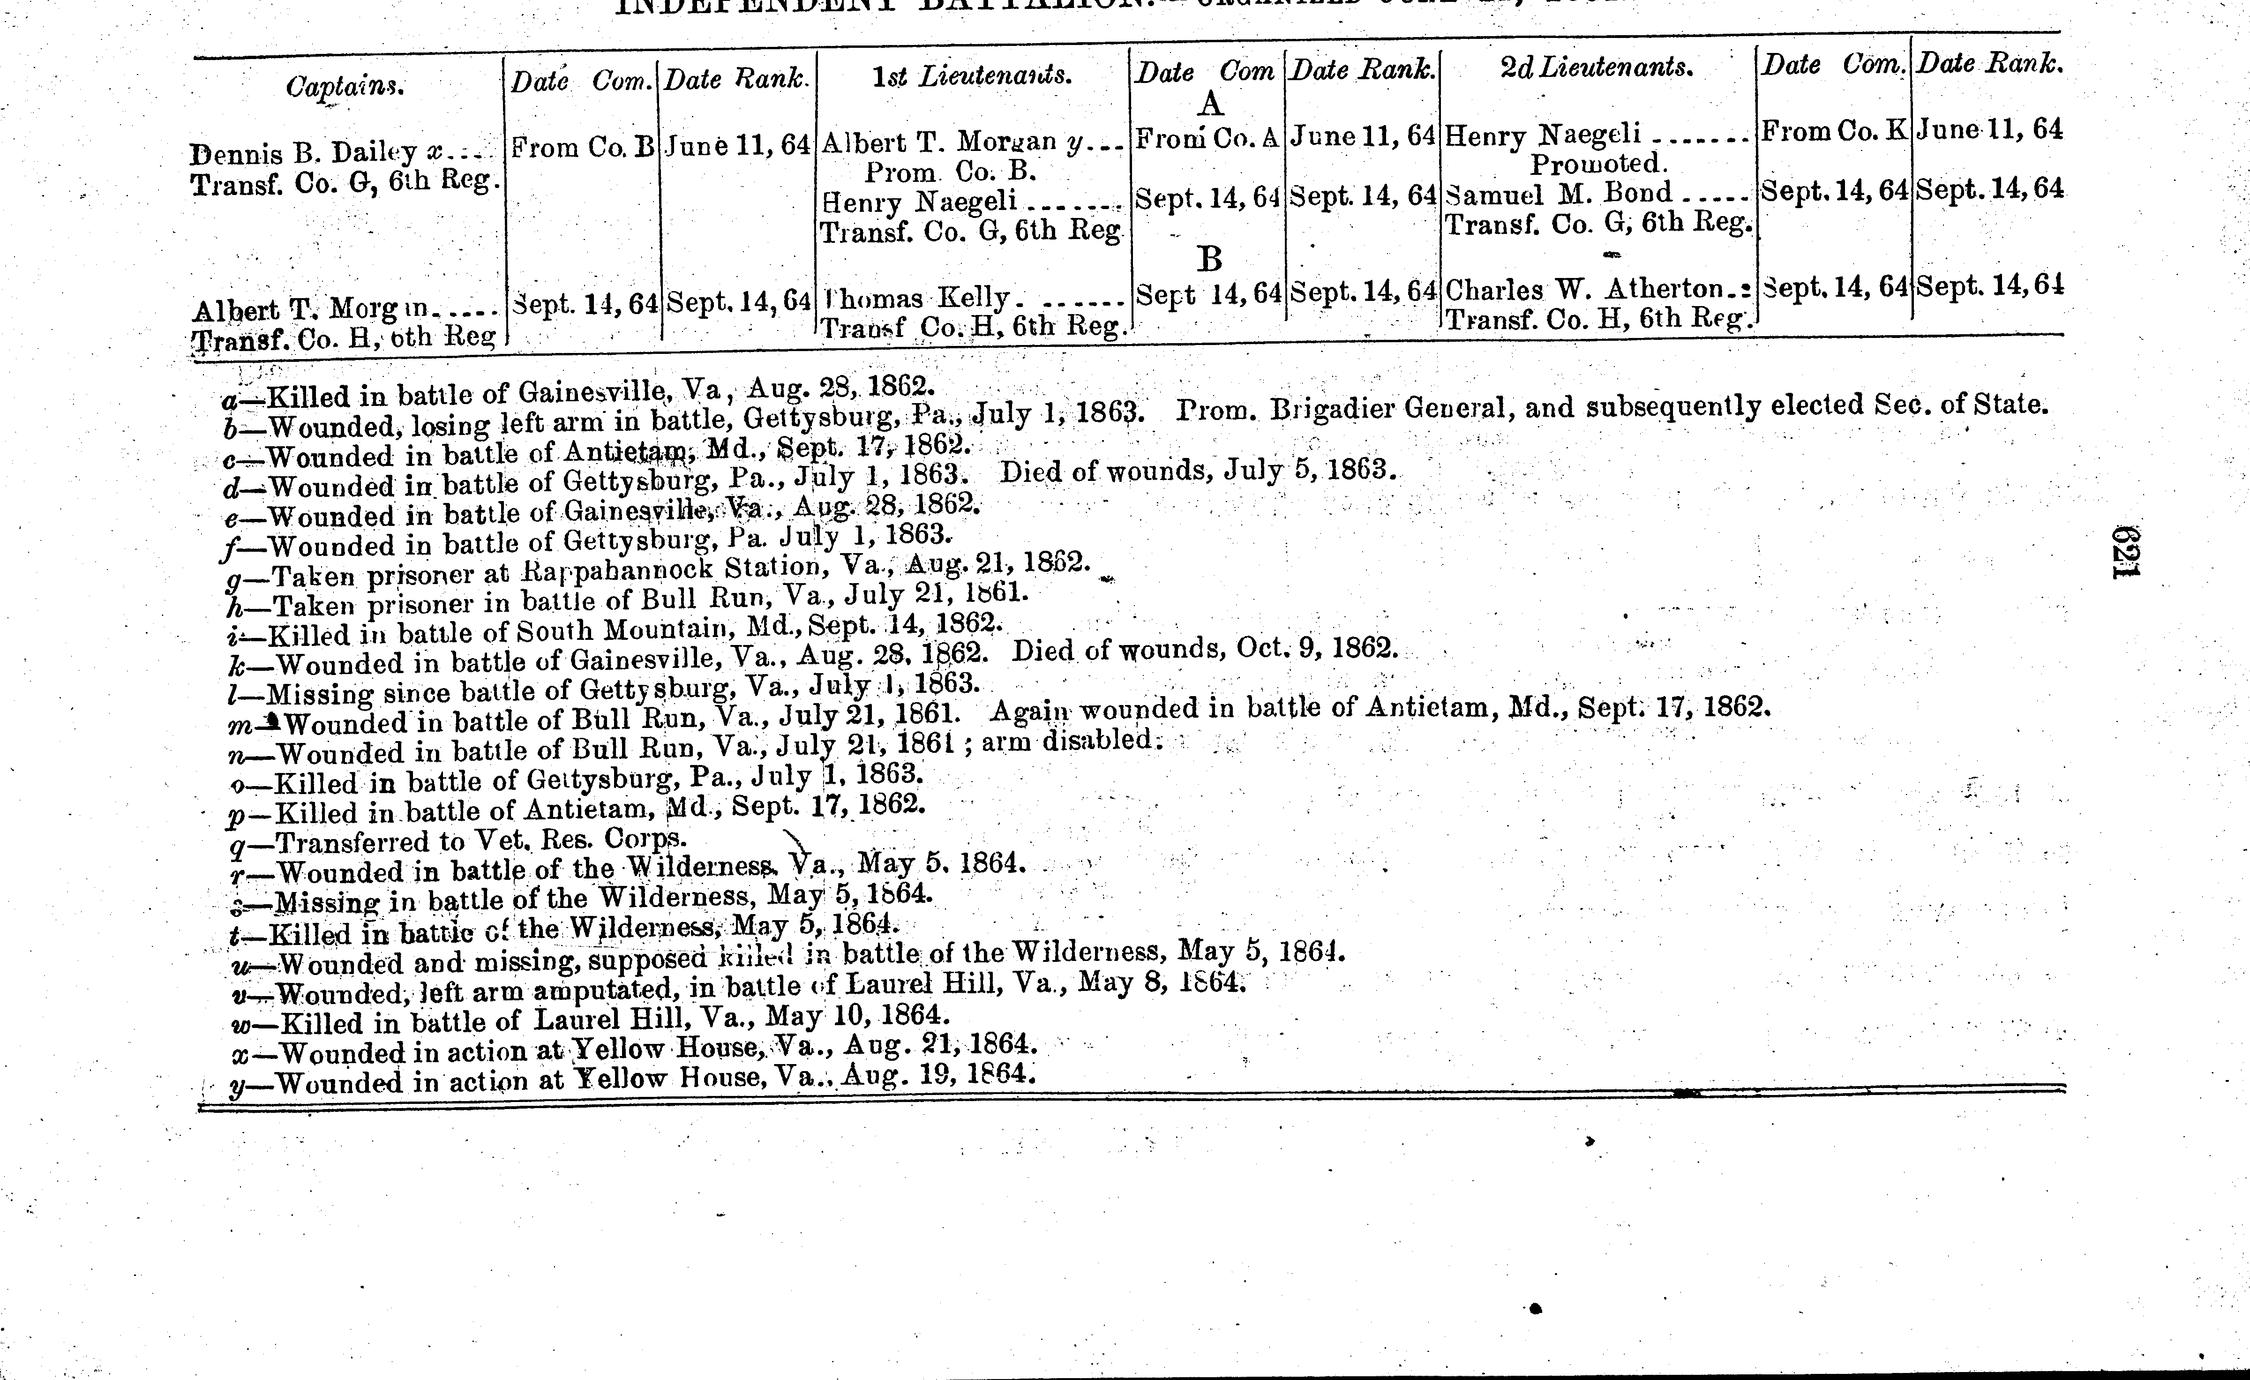 INDEPENDENT BATTALION.—ORGANIZED
Captains. Date Com. Date Rank. 1st Lieutenants. Date Com Date Rank. 2d Lieutenants. Date Com. Date Rank.
A
Dennis B. Dailey x.... From Co. B June 11, 64 Albert T. Morgan y... From Co. A June 11, 64 Henry Naegeli ....... From Co. K June 11, 64
Transf. Co. G, 6th Reg. Prom. Co. B. Promoted.
Henry Naegeli ....... Sept. 14, 64 Sept. 14, 64 Samuel M. Bond ..... Sept. 14, 64 Sept. 14, 64
Transf. Co. G, 6th Reg. Transf. Co. G, 6th Reg.
B
Albert T. Morgan..... Sept. 14, 64 Sept. 14, 64 Thomas Kelly. ....... Sept 14, 64 Sept. 14, 64 Charles W. Atherton.: Sept. 14, 64 Sept. 14, 64
Transf. Co. H, 6th Reg Transf Co. H, 6th Reg. Transf. Co. H, 6th Reg.
a—Killed in battle of Gainesville, Va, Aug. 28, 1862.
b—Wounded, losing left arm in battle, Gettysburg, Pa., July 1, 1863. Prom. Brigadier General, and subsequently elected Sec. of State.
c—Wounded in battle of Antietam, Md., Sept. 17, 1862.
d—Wounded in battle of Gettysburg, Pa., July 1, 1863. Died of wounds, July 5, 1863.
e—Wounded in battle of Gainesville, Va., Aug. 28, 1862.
f—Wounded in battle of Gettysburg, Pa. July 1, 1863.
g—Taken prisoner at Rappahannock Station, Va., Aug. 21, 1862.
h—Taken prisoner in battle of Bull Run, Va., July 21, 1861.
i—Killed in battle of South Mountain, Md., Sept. 14, 1862.
k—Wounded in battle of Gainesville, Va., Aug. 28, 1862. Died of wounds, Oct. 9, 1862.
l—Missing since battle of Gettysburg, Va., July 1, 1863.
m—Wounded in battle of Bull Run, Va., July 21, 1861. Again wounded in battle of Antietam, Md., Sept. 17, 1862.
n—Wounded in battle of Bull Run, Va., July 21, 1861 ; arm disabled.
o—Killed in battle of Gettysburg, Pa., July 1, 1863.
p—Killed in battle of Antietam, Md., Sept. 17, 1862.
q—Transferred to Vet. Res. Corps.
r—Wounded in battle of the Wilderness, Va., May 5, 1864.
s—Missing in battle of the Wilderness, May 5, 1864.
t—Killed in battle of the Wilderness, May 5, 1864.
u—Wounded and missing, supposed killed in battle of the Wilderness, May 5, 1864.
v—Wounded, left arm amputated, in battle of Laurel Hill, Va., May 8, 1864.
w—Killed in battle of Laurel Hill, Va., May 10, 1864.
x—Wounded in action at Yellow House, Va., Aug. 21, 1864.
y—Wounded in action at Yellow House, Va., Aug. 19, 1864.
621